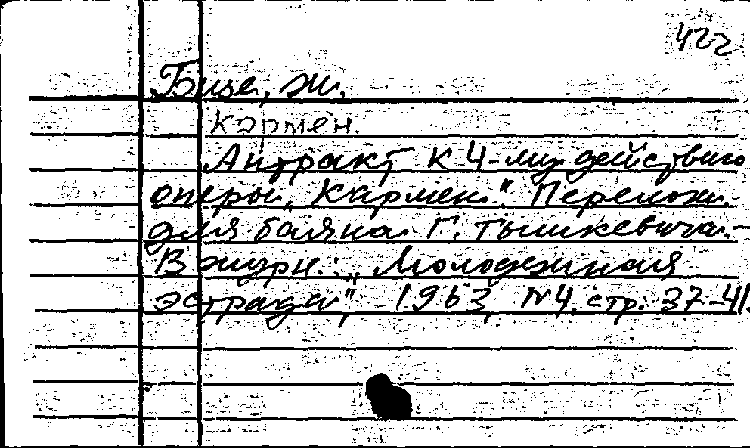 422
Бизе, Ж.
Кармен.
Антракт к 4-му действию
оперы „Кармен". Перелож.
для баяна Г. Тышкевича.-
В журн.: „Молодежная
эстрада", 1963, №4, стр. 37-41.